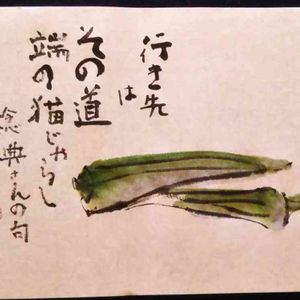 行き先
は
その道
端の猫じゃらし
稔典さんの句